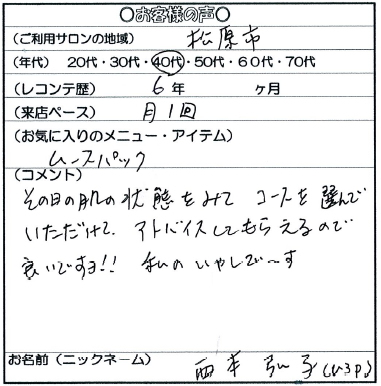 ○お客様の声○
(ご利用サロンの地域) 松原市
(年代) 20代・30代・40代・50代・60代・70代
(レコンテ歴) 6年 ヶ月
(来店ペース) 月1回
(お気に入りのメニュー・アイテム)
ムースパック
(コメント)
その日の肌の状態をみて コースを選んで
いただけて、アドバイスしてもらえるので
良いですヨ!! 私のいやしで〜す
お名前(ニックネーム) 西本 弘子